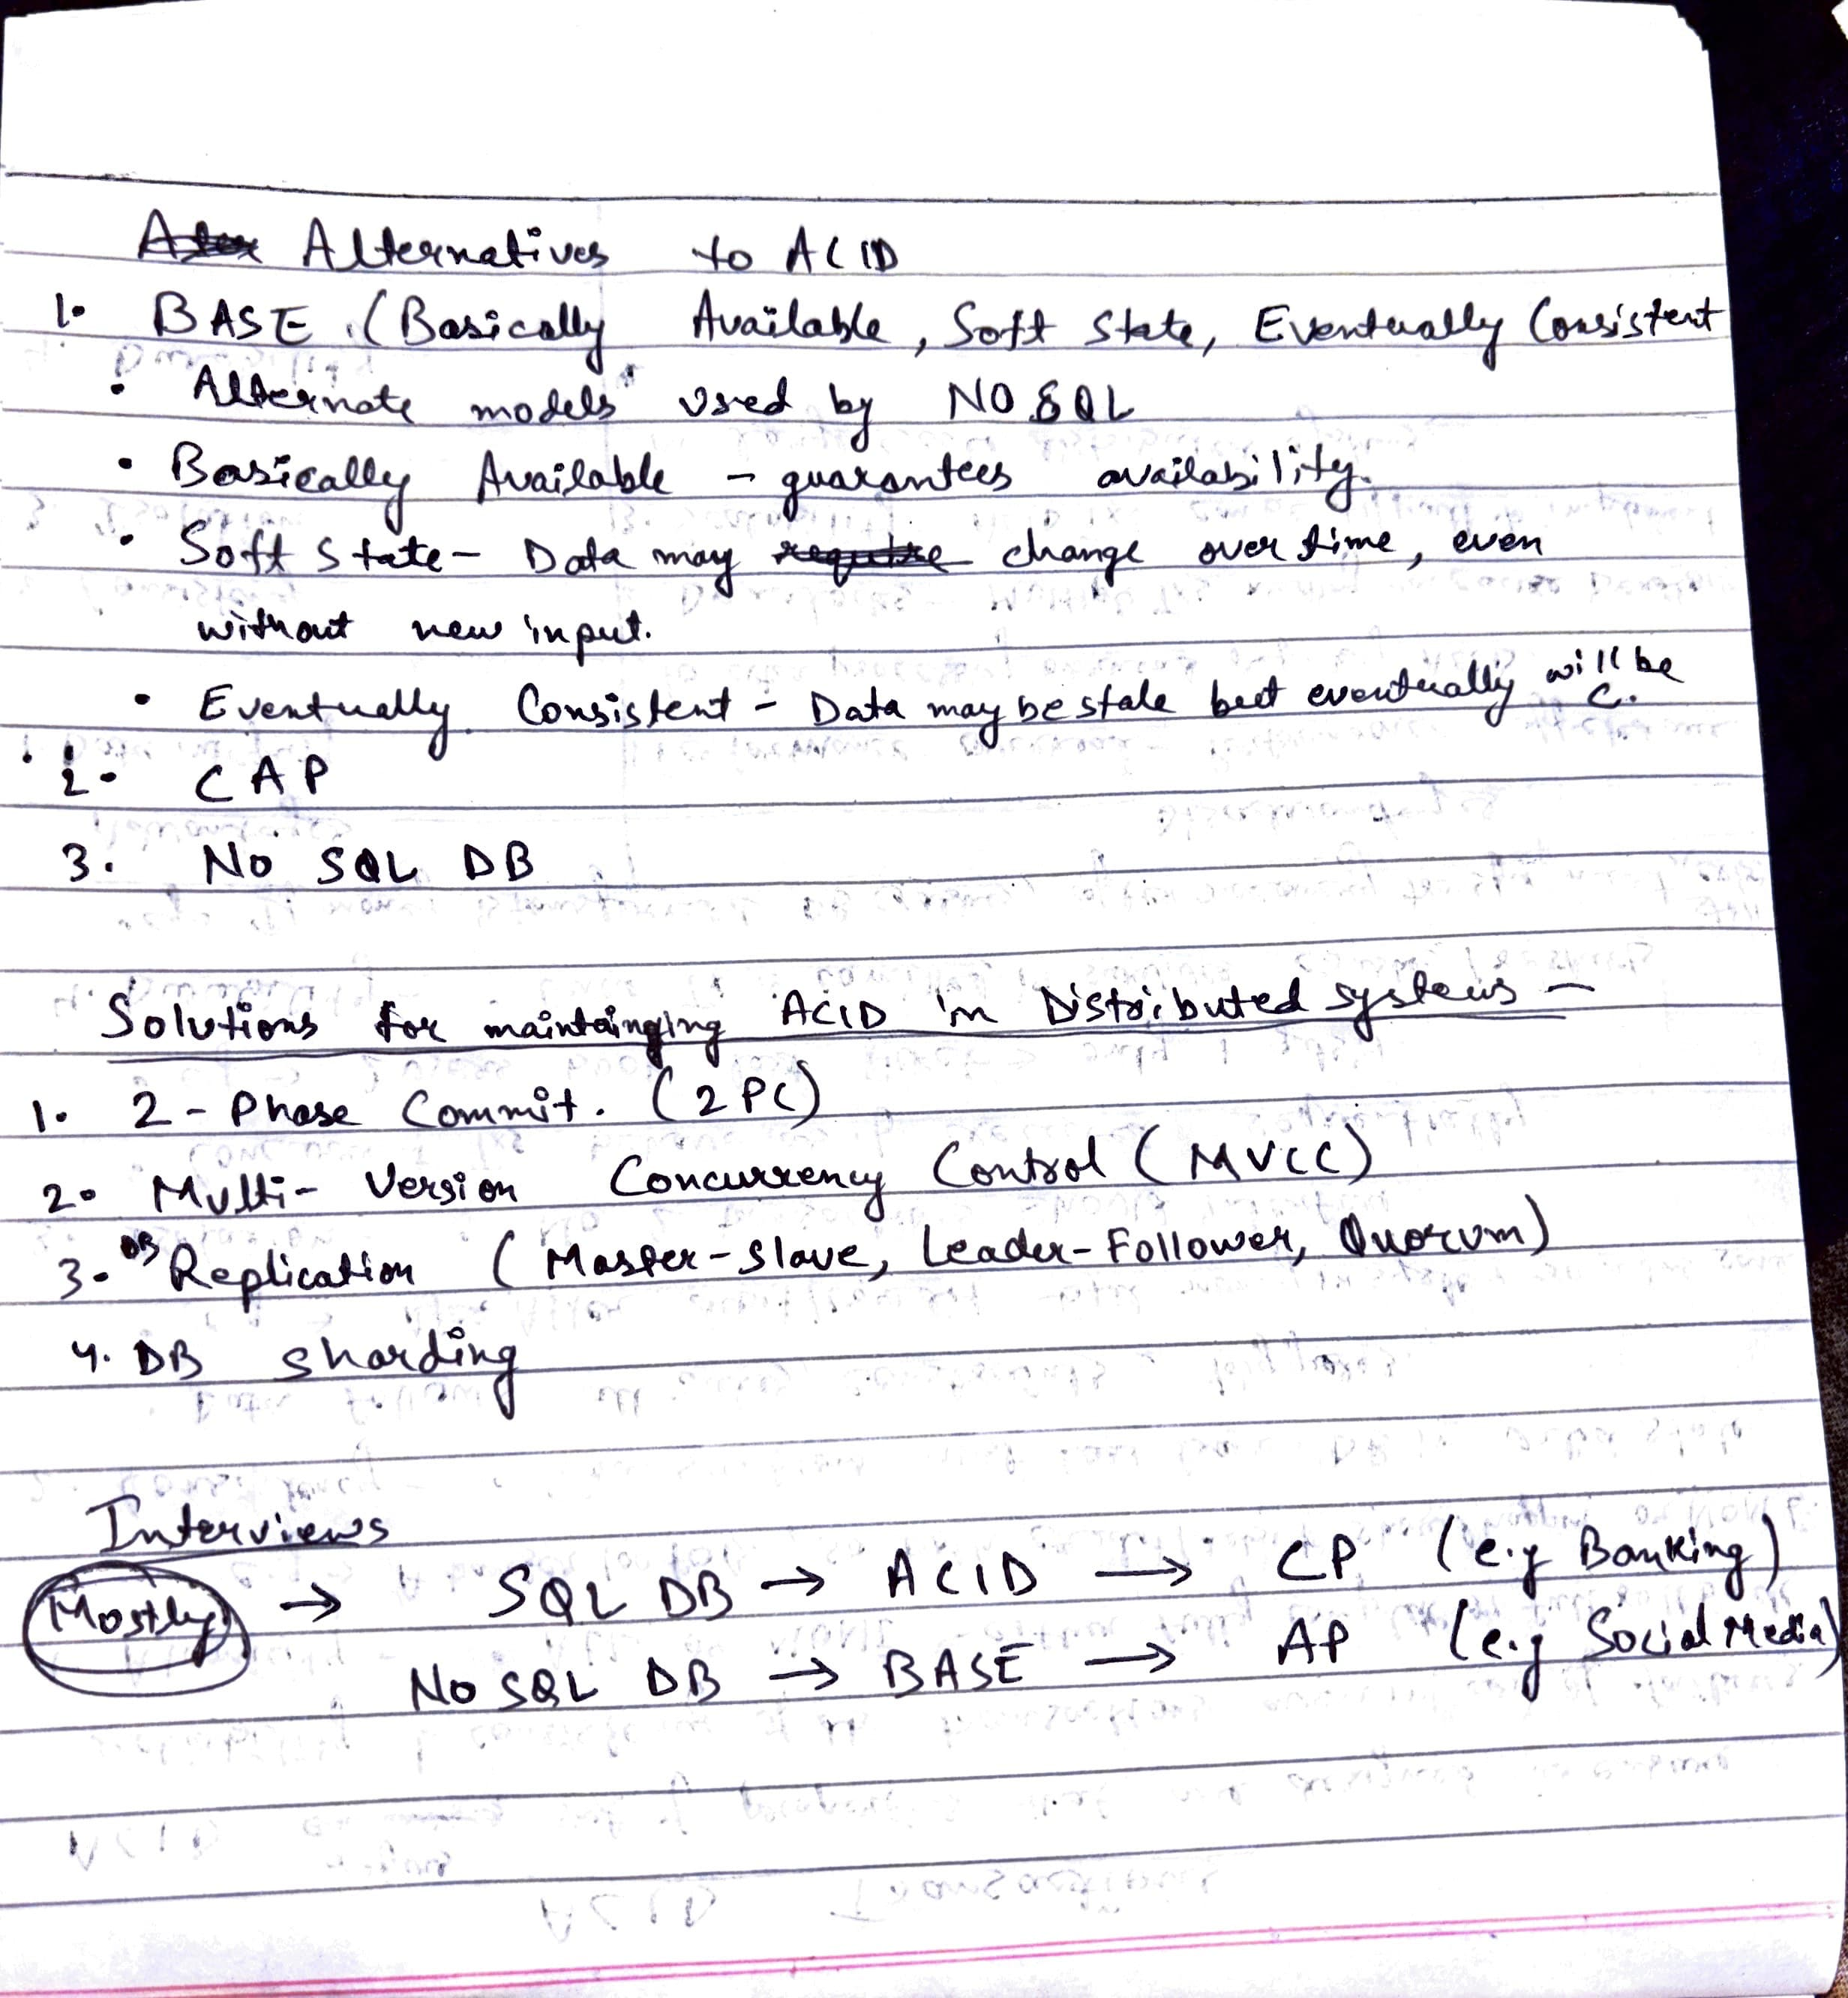 Alternatives to ACID
1. BASE (Basically Available, Soft State, Eventually Consistent
• Alternate models used by NO SQL
• Basically Available - guarantees availability.
• Soft State - Data may change over time, even
without new input.
• Eventually Consistent - Data may be stale but eventually will be C.
2. CAP
3. No SQL DB
Solutions for maintainging ACID in Distributed systems -
1. 2-Phase Commit. (2PC)
2. Multi-Version Concurrency Control (MVCC)
3. DB Replication (Master-Slave, Leader-Follower, Quorum)
4. DB sharding
Interviews
Mostly → SQL DB → ACID → CP (e.g Banking)
No SQL DB → BASE → AP (e.g Social Media)